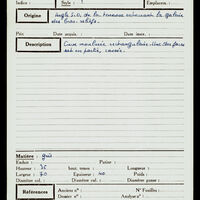 Indice : Style : Emplacem. :
Origine Angle S.O. de la terrasse entourant la galerie
des bas-reliefs.
Prix : Date acquis. : Date inv. :
Description Cuve moulurée rectangulaire. Une des faces
est en partie cassée.
Matière : grès
Enduit : Patine :
Hauteur : 35 haut. tenon : Longueur :
Largeur : 70 Epaisseur : 40 Poids :
Diamètre col. : Diamètre panse :
Références Ancien n° : N° Fouilles :
Dossier n° : Analyse n° :